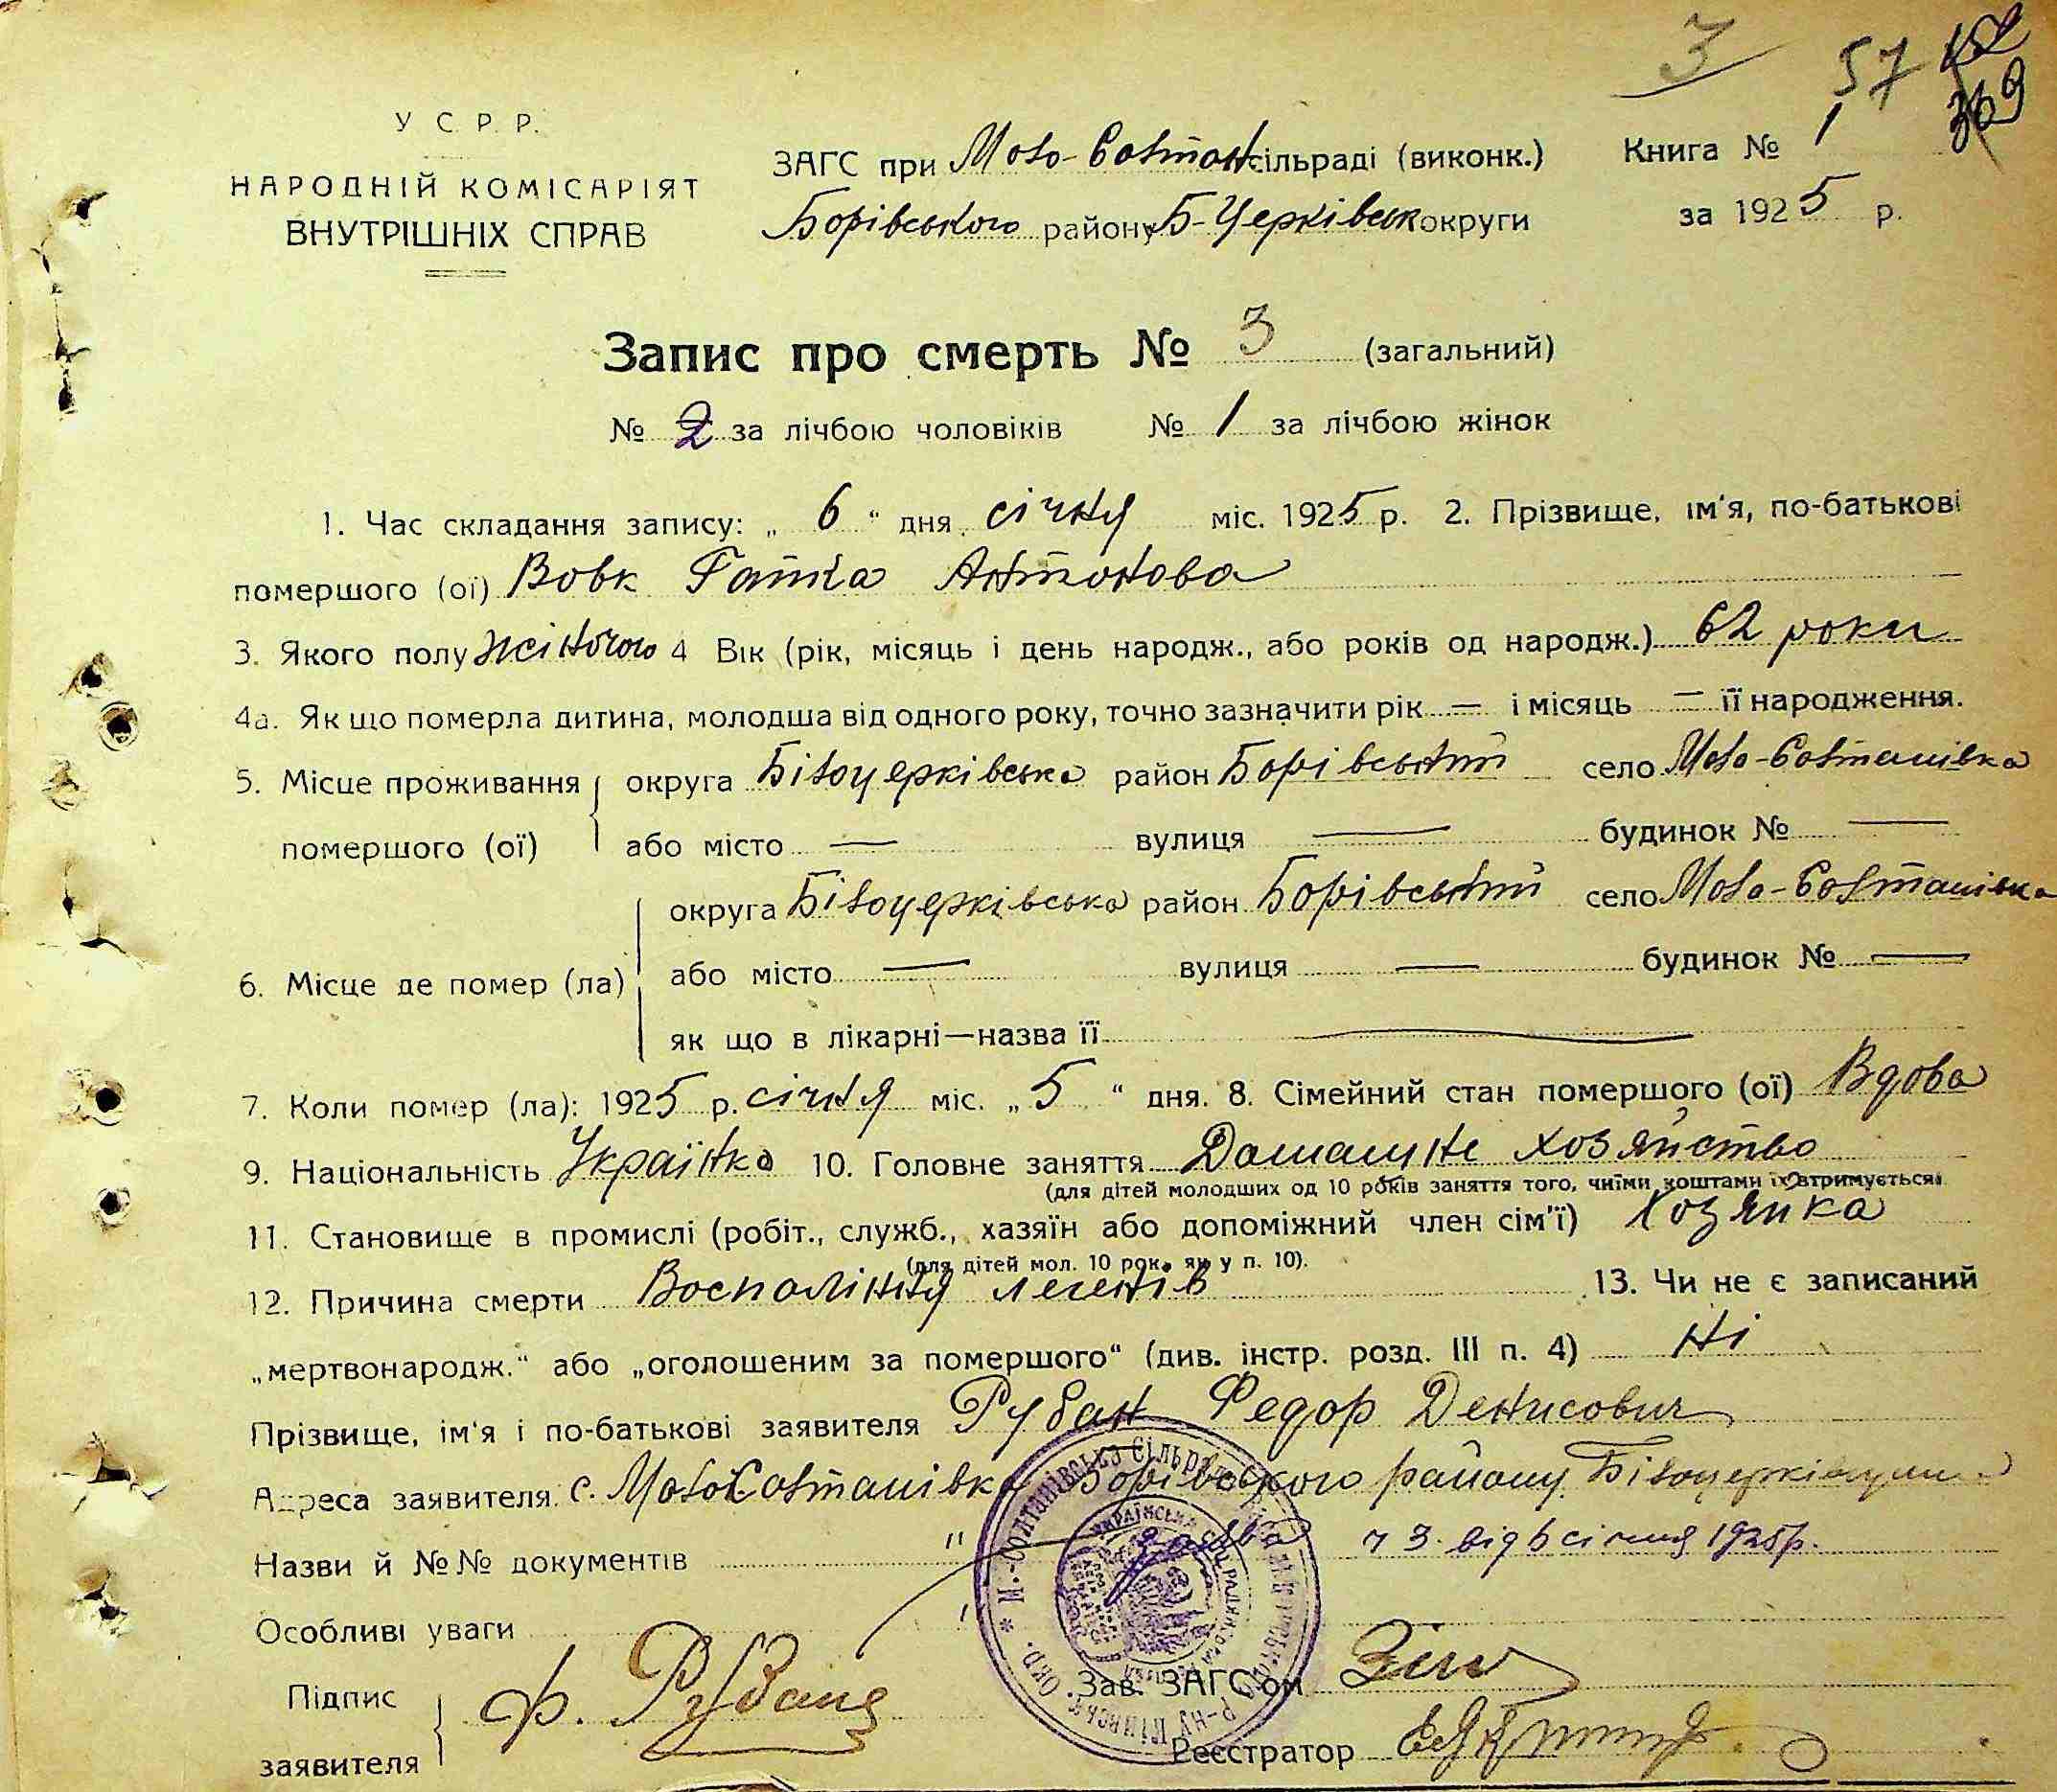 3 57
369
У С. Р. Р.
НАРОДНІЙ КОМІСАРІЯТ
ВНУТРІШНІХ СПРАВ
ЗАГС при Мало-Солтан сільраді (виконк.)
Борівського району Б-Церківськ округи
Книга № 1
за 1925 р.
Запис про смерть № 3 (загальний)
№ 2 за лічбою чоловіків № 1 за лічбою жінок
1. Час складання запису: „ 6 “ дня січня міс. 1925 р. 2. Прізвище, ім'я, по-батькові
помершого (ої) Вовк Ганна Антонова
3. Якого полу жіночого 4 Вік (рік, місяць і день народж., або років од народж.) 62 роки
4а. Як що померла дитина, молодша від одного року, точно зазначити рік — і місяць — її народження.
5. Місце проживання округа Білоцерківська район Борівський село Мало-Солтанівка
помершого (ої) або місто — вулиця — будинок № —
округа Білоцерківська район Борівський село Мало-Солтанівка
6. Місце де помер (ла) або місто — вулиця — будинок № —
як що в лікарні—назва її —
7. Коли помер (ла): 1925 р. січня міс. „ 5 “ дня. 8. Сімейний стан помершого (ої) Вдова
9. Національність Українка 10. Головне заняття Домашне хозяйство
(для дітей молодших од 10 років заняття того, чиїми коштами їх втримується)
11. Становище в промислі (робіт., служб., хазяїн або допоміжний член сім'ї) Хозяйка
(для дітей мол. 10 рок. як у п. 10).
12. Причина смерти Воспоління легенів 13. Чи не є записаний
„мертвонародж.“ або „оголошеним за помершого“ (див. інстр. розд. III п. 4) Ні
Прізвище, ім'я і по-батькові заявителя Рубан Федор Денисович
Адреса заявителя: с. МалоСолтанівка Борівського району Білоцерківщини
Назви й №№ документів " заява ч 3. від 6 січня 1925р.
Особливі уваги "
Підпис
заявителя
ф. Рубана
Зав. ЗАГС'ом
Реєстратор